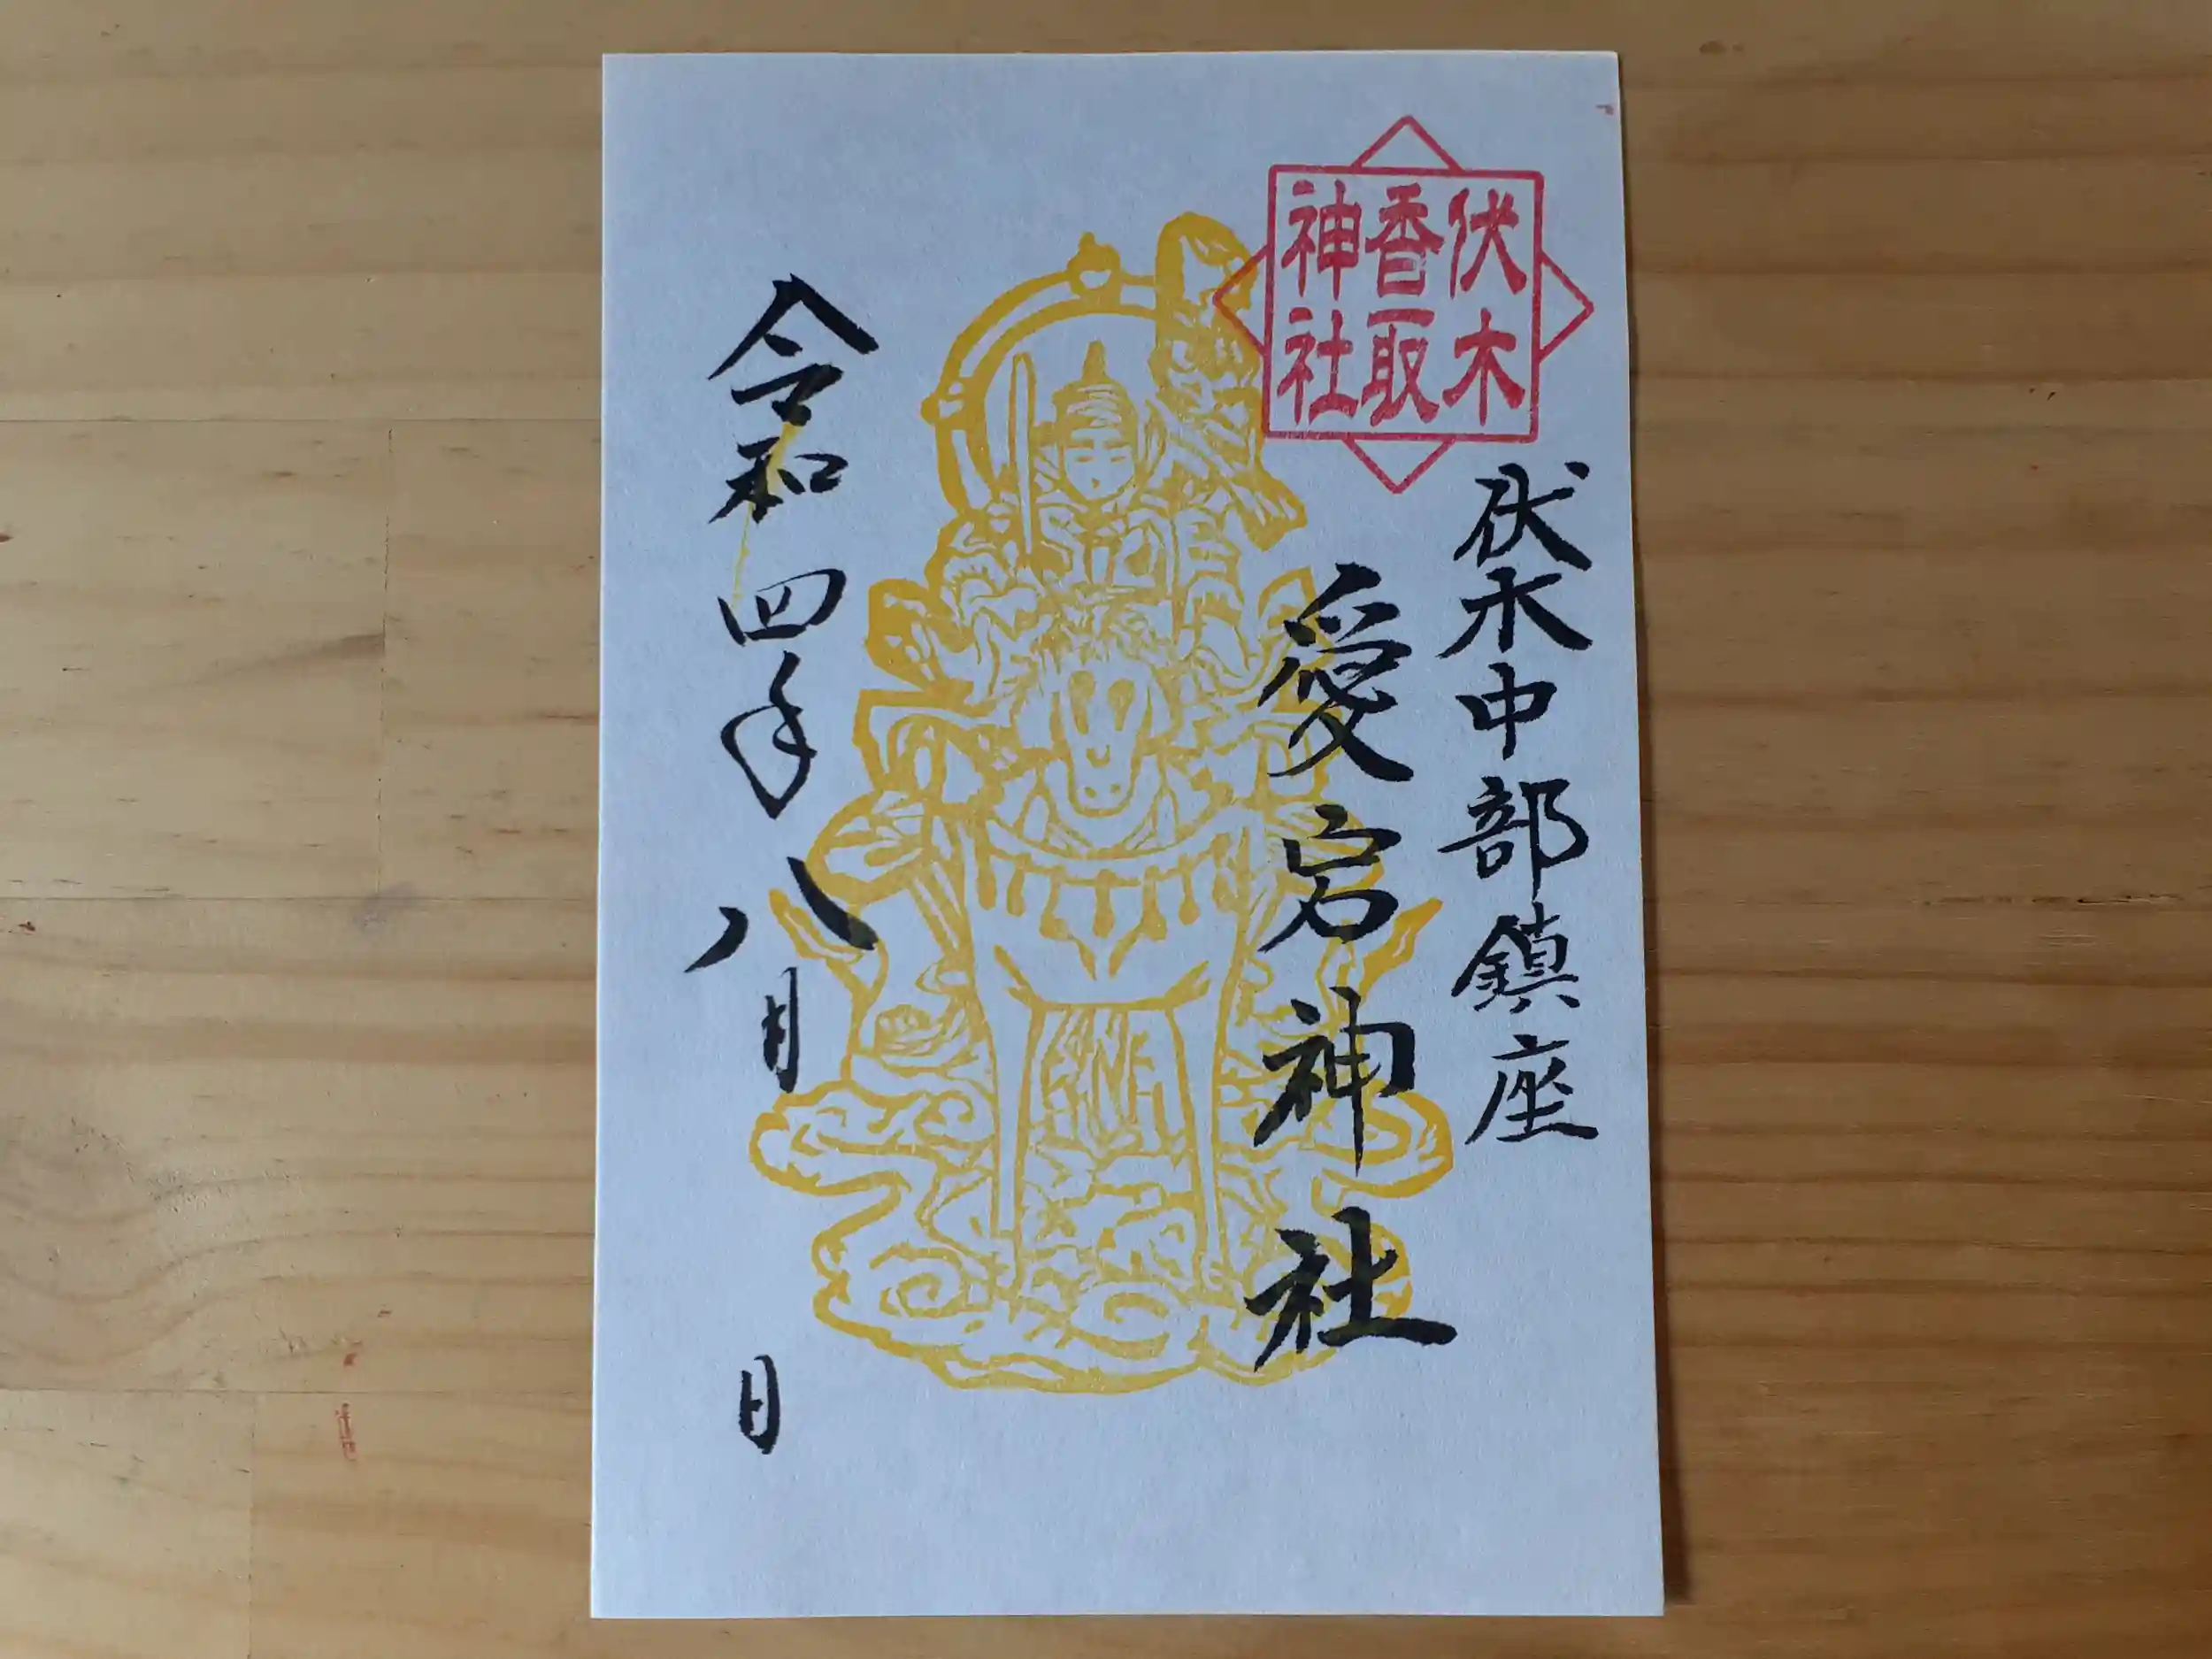 伏木
香取
神社
伏木中部鎮座
愛宕神社
令和四年八月　日